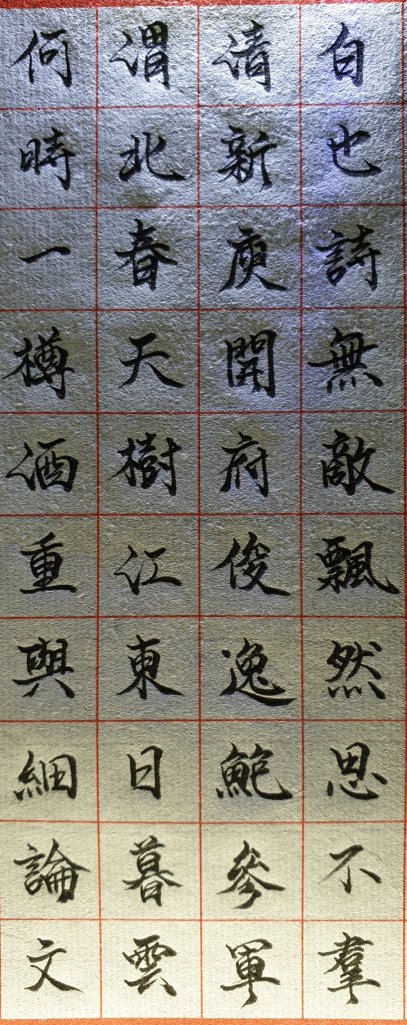 白也詩無敵飄然思不羣
清新庾開府俊逸鮑參軍
渭北春天樹江東日暮雲
何時一樽酒重與細論文